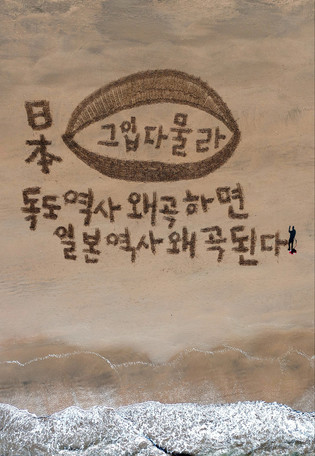 日本
그입다물라
독도역사 왜곡하면
일본역사왜곡된다